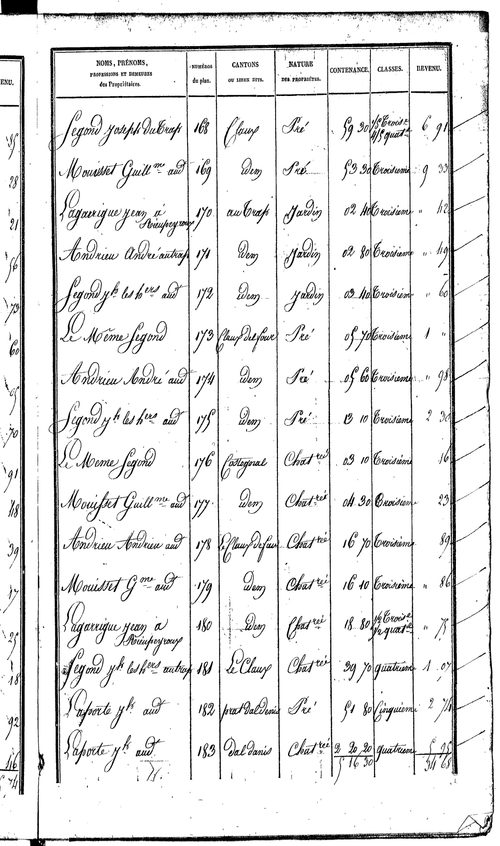 ENU. NOMS, PRÉNOMS, PROFESSIONS ET DEMEURES des Propriétaires. NUMÉROS du plan. CANTONS OU LIEUX DITS. NATURE DES PROPRIÉTÉS. CONTENANCE. CLASSES. REVENU.
Segond Joseph Du Traps 168 Claux Pré 59 30 1/5 Trois.e 4/5 quat.e 6 91
Mouisset Guill.me aud 169 idem Pré 53 30 Troisieme 9 33
Lagarrigue jean à Rieupeyroux 170 au Traps Jardin 02 40 Troisieme " 42
Andrieu André autraps 171 idem Jardin 02 80 Troisieme " 49
Segond jh les hers aud 172 idem Jardin 03 40 Troisieme " 60
Le Même Segond 173 Claux del four Pré 05 70 Troisieme 1 "
Andrieu André aud 174 idem Pré 05 60 Troisieme " 98
Segond jh les hers aud 175 idem Pré 13 10 Troisieme 2 30
Le Meme Segond 176 Castegnal Chat.rée 03 10 Troisieme 16
Mouisset Guill.me aud 177 idem Chat.rée 04 30 Troisieme 23
Andrieu Andrieu aud 178 Chat.rée 16 70 Troisieme 89
Mouisset G.me aud 179 idem Chat.rée 16 10 Troisieme " 86
Lagarrigue jean à Rieupeyroux 180 idem Chat.rée 18 80 1/2 Trois.e 1/2 quat.e "
Segond jh les hers autraps 181 Le Claux Chat.rée 39 70 quatrieme 1 07
Laporte jh aud 182 Pré 51 80 Cinquieme 2
Laporte jh aud 183 Dal danis Chat.rée 2 20 20 quatrieme 5 95
5 16 30 34 68